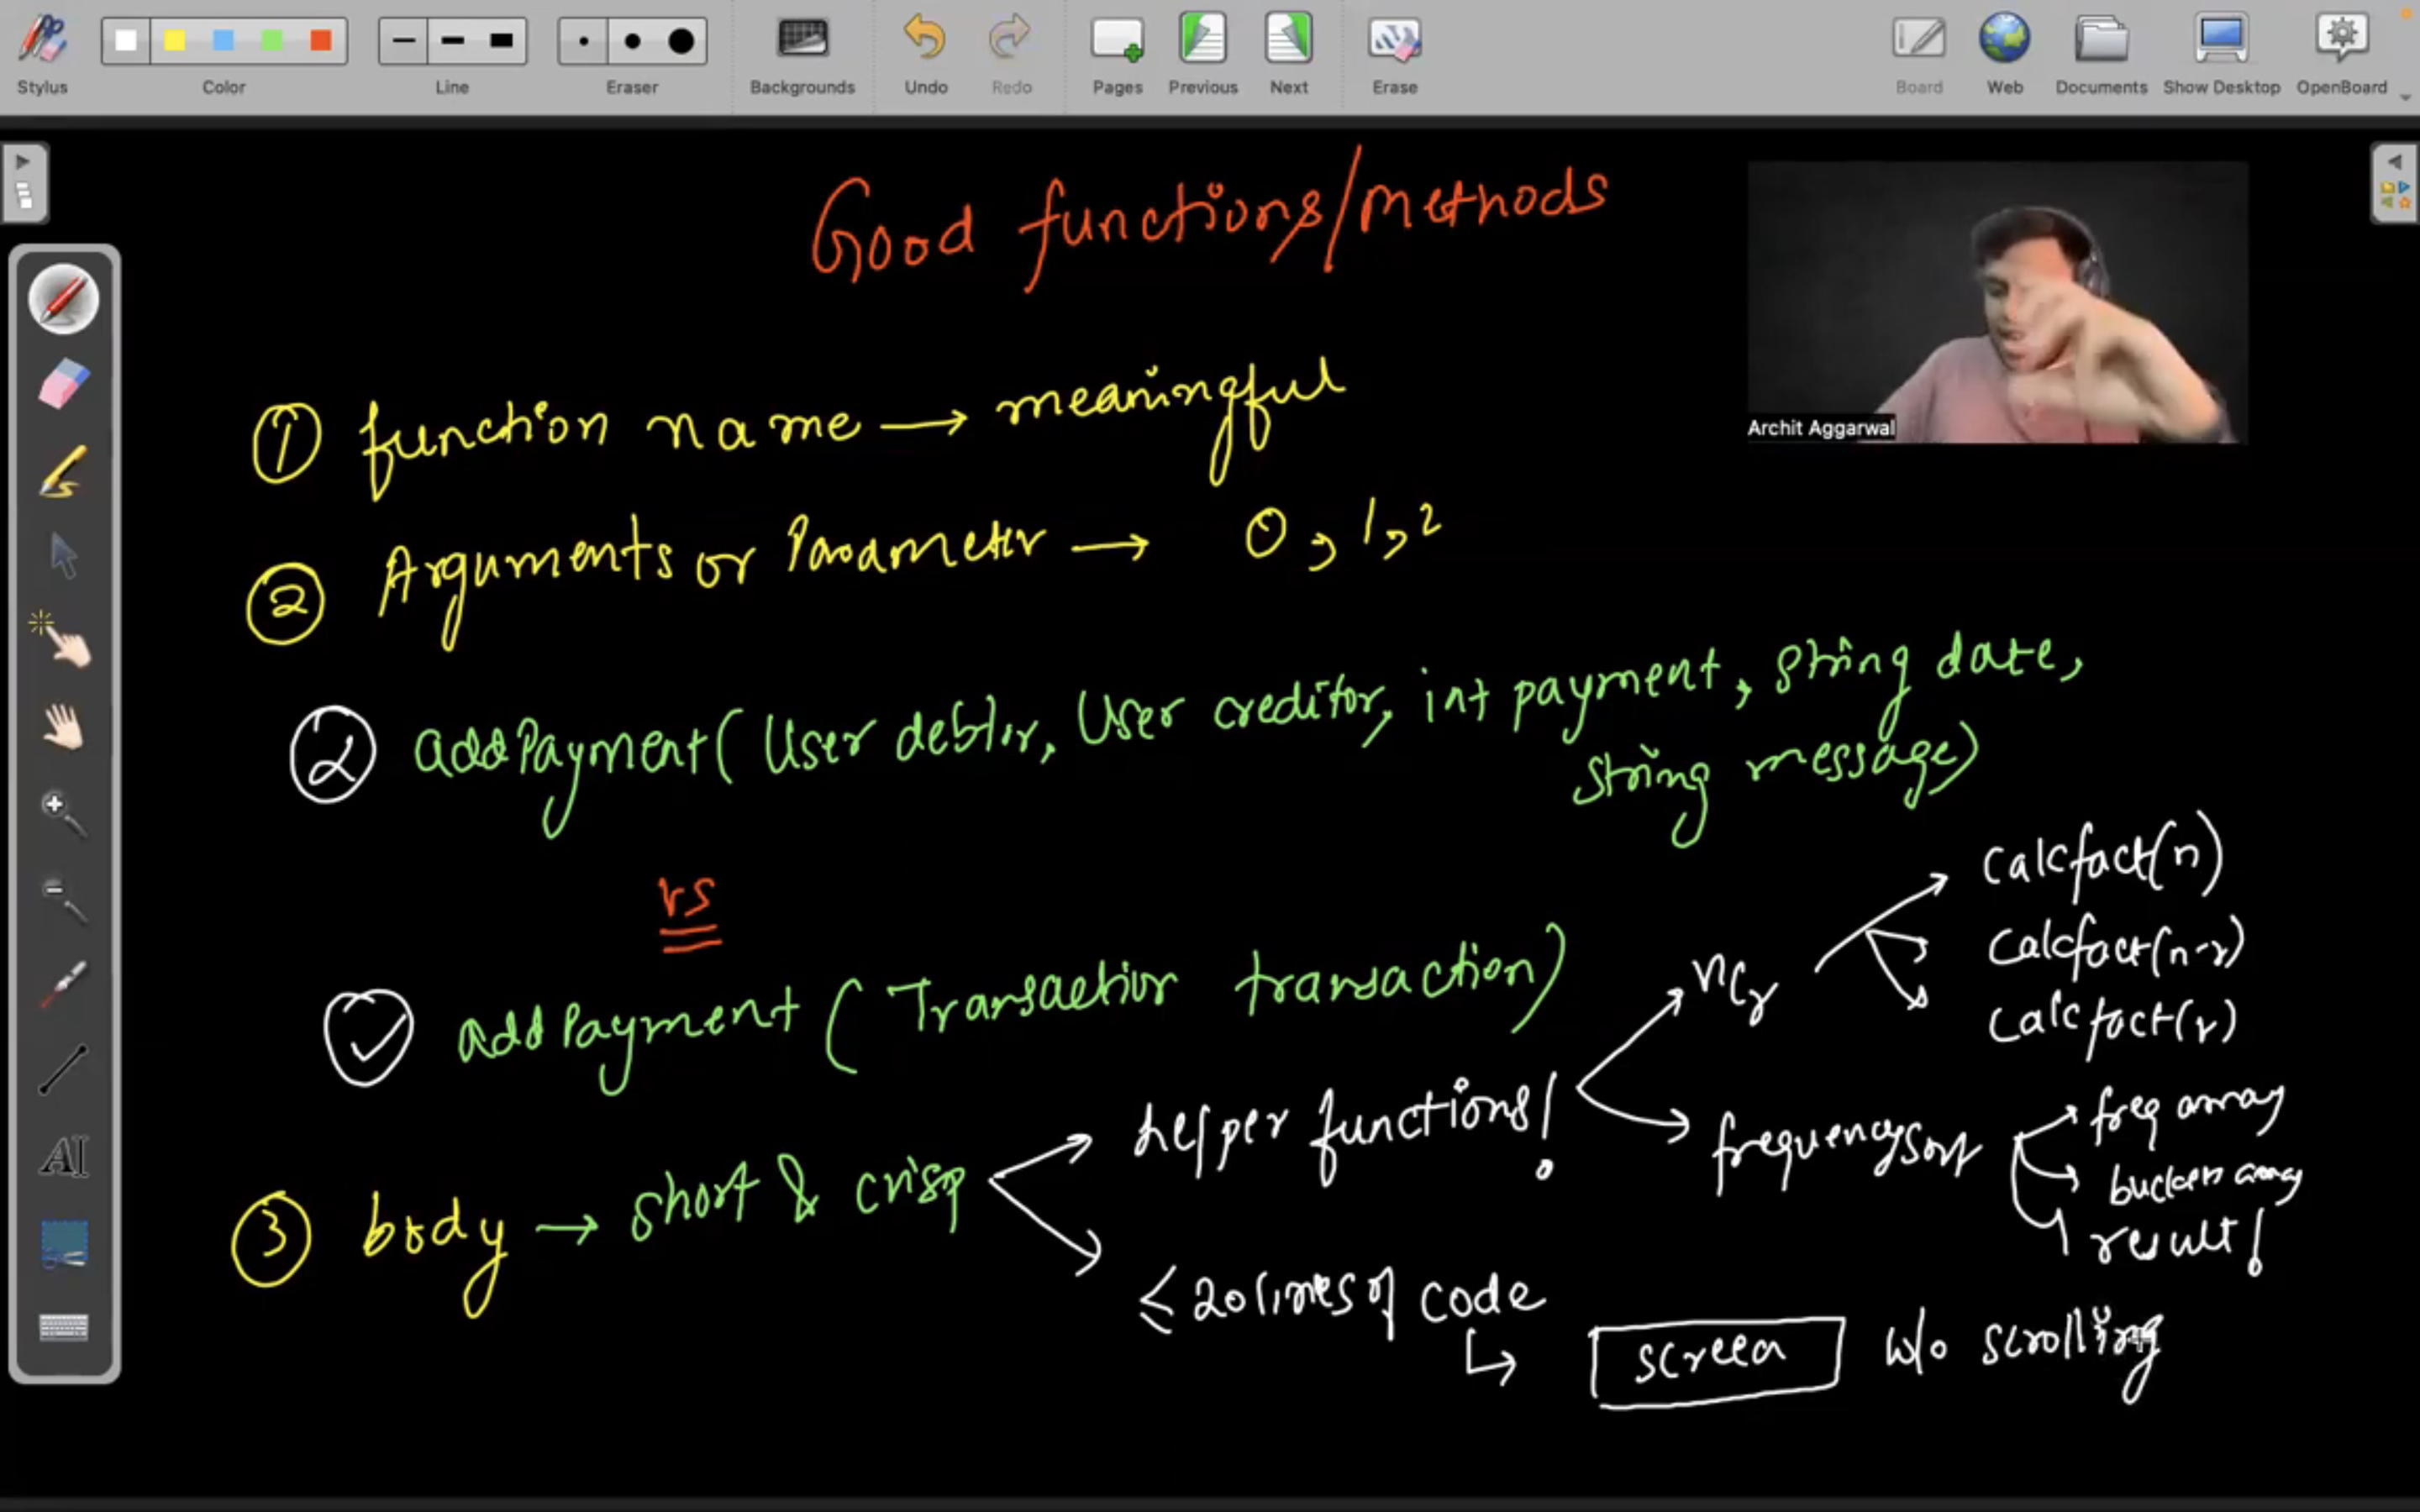 Stylus
Color
Line
Eraser
Backgrounds
Undo
Redo
Pages
Previous
Next
Erase
Board
Web
Documents
Show Desktop
OpenBoard
Good functions/methods
Archit Aggarwal
① function name → meaningful
② Arguments or Parameter → 0, 1, 2
addPayment( User debtor, User creditor, int payment, string date,
string message)
vs
addPayment ( Transaction transaction)
③ body → short & crisp
helper functions!
nCr
calcfact(n)
calcfact(n-r)
calcfact(r)
frequencysort
freq array
buckets array
result!
≤ 20 lines of code
↳ screen w/o scrolling
AI